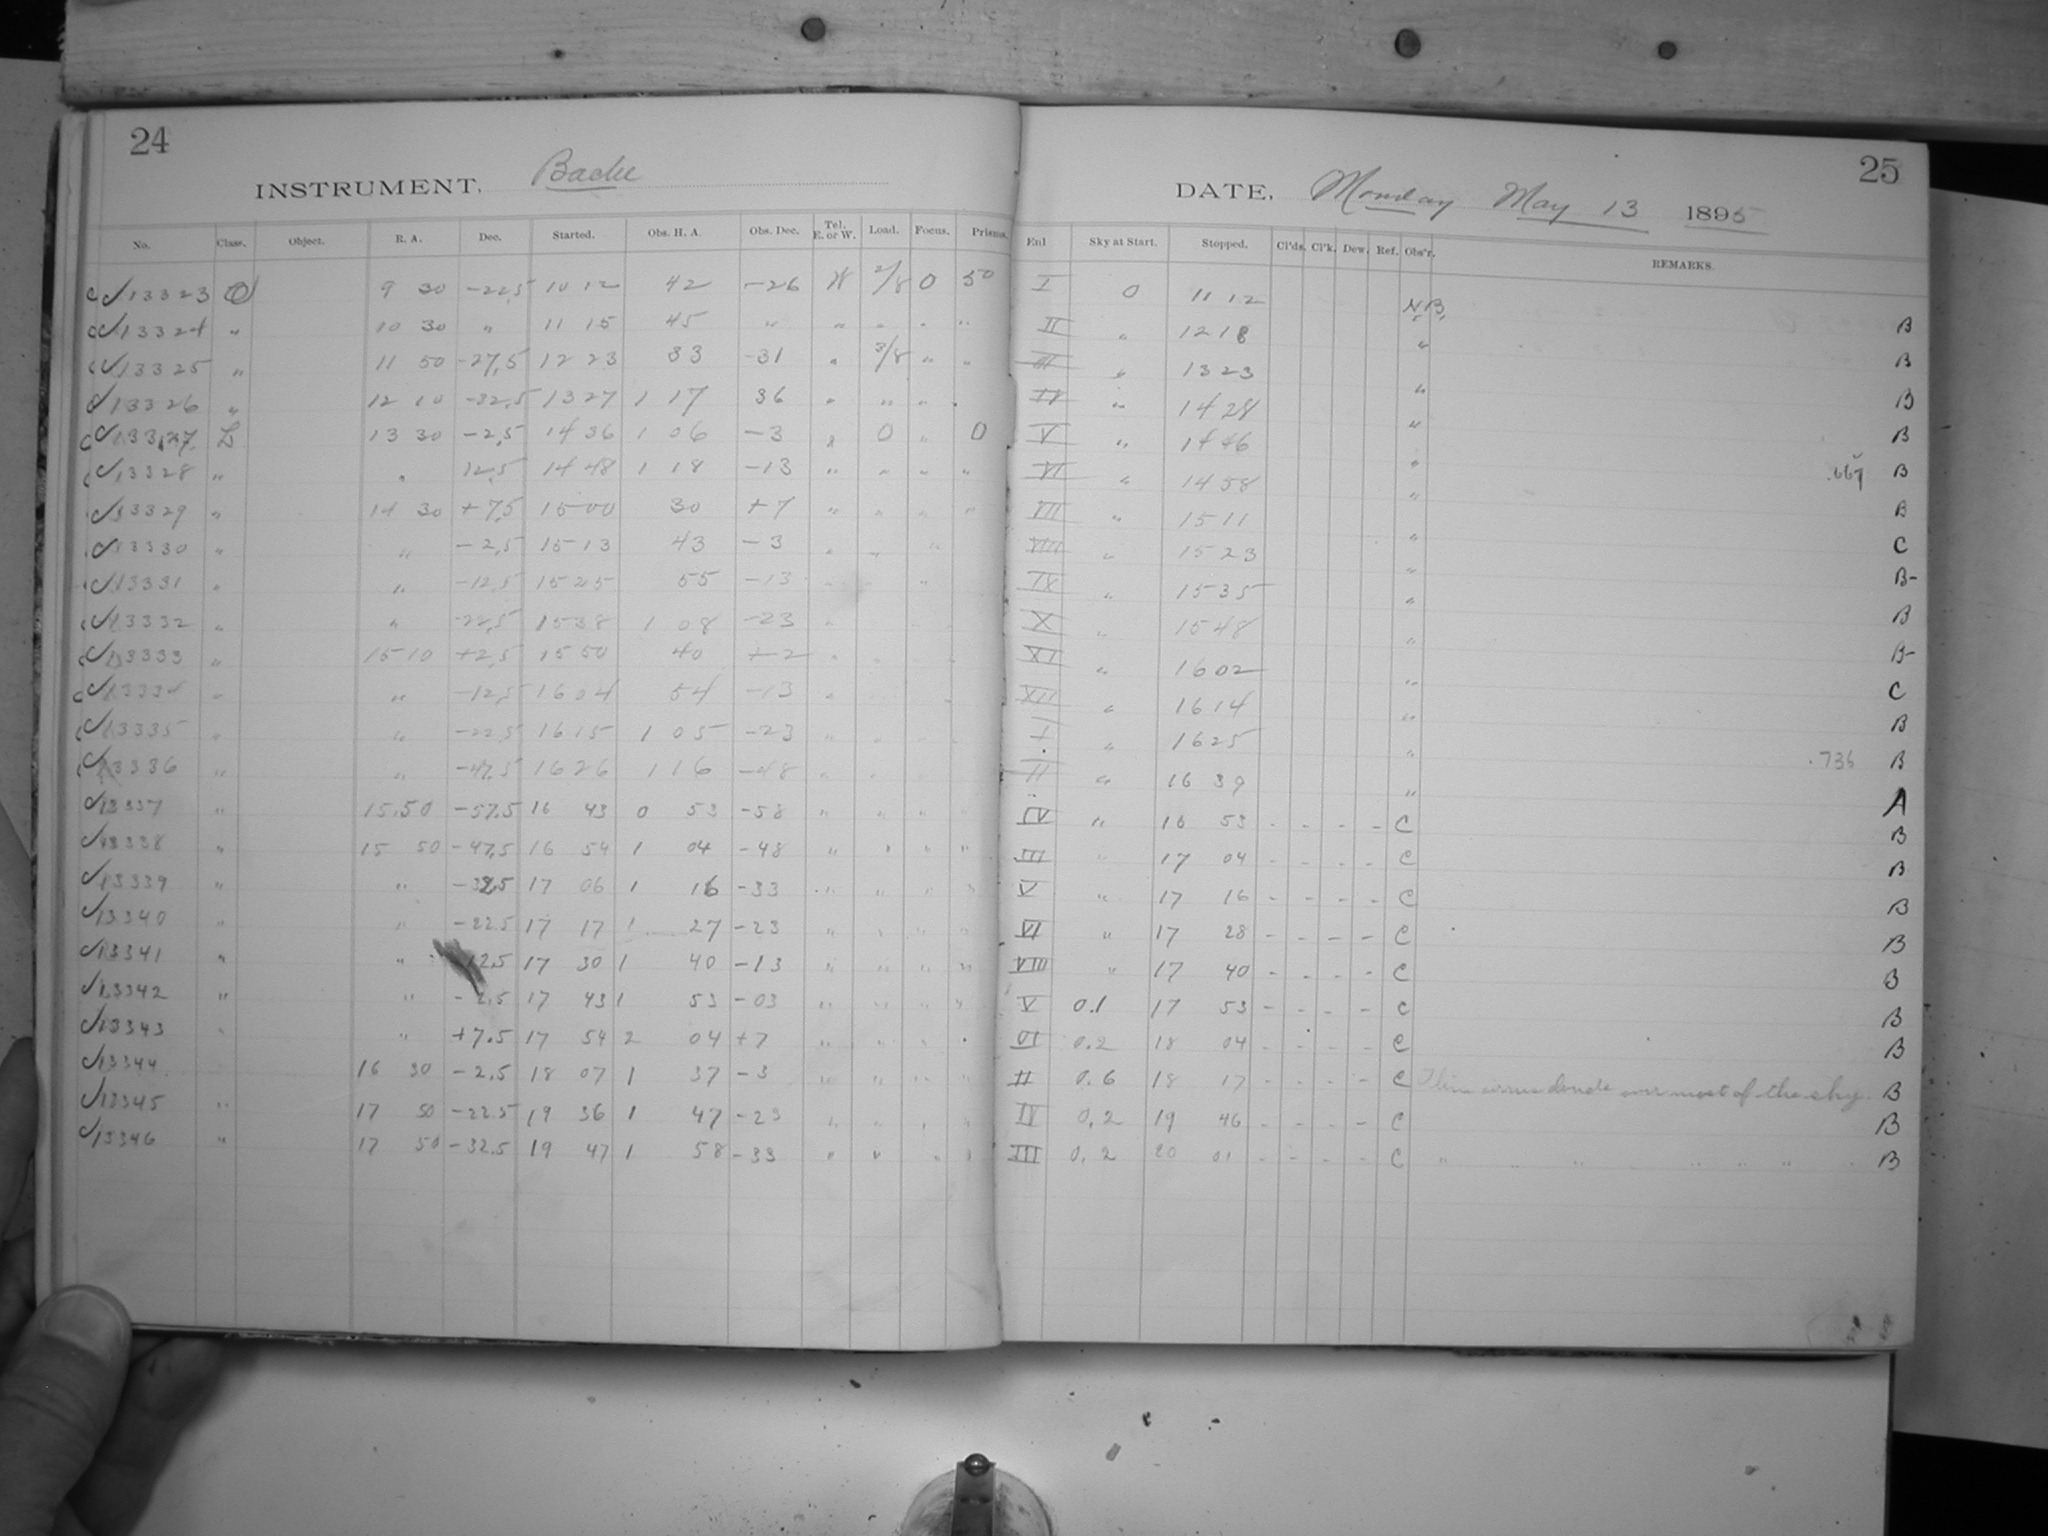 24
INSTRUMENT. Bache
No. Class. Object. R. A. Dec. Started. Obs. H. A. Obs. Dec. Tel. E. or W. Load. Focus. Prisms.
13323 O 9 30 -22,5 10 12 42 -26 W 2/8 0 50
13324 " 10 30 " 11 15 45 " " " " "
13325 " 11 50 -27,5 12 23 33 -31 " 3/8 " "
13326 " 12 10 -32,5 13 27 1 17 36 " " " "
13327 L 13 30 -2,5 14 36 1 06 -3 " 0 " 0
13328 " " 12,5 14 48 1 18 -13 " " " "
13329 " 14 30 +7,5 15 00 30 +7 " " " "
13330 " " -2,5 15 13 43 -3 " " "
13331 " " -12,5 15 25 55 -13 " " "
13332 " " -22,5 15 38 1 08 -23 "
13333 " 15 10 +2,5 15 50 40 +2 " "
13334 " " -12,5 16 04 54 -13 "
13335 " " -22,5 16 15 1 05 -23 " "
13336 " " -47,5 16 26 1 16 -48 " "
13337 " 15.50 -57.5 16 43 0 53 -58 " " " "
13338 " 15 50 -47,5 16 54 1 04 -48 " " " "
13339 " " -32.5 17 06 1 16 -33 " " " "
13340 " " -22.5 17 17 1 27 -23 " " " "
13341 " " -12.5 17 30 1 40 -13 " " " "
13342 " " -2.5 17 43 1 53 -03 " " " "
13343 " " +7.5 17 54 2 04 +7 " " " "
13344 16 30 -2.5 18 07 1 37 -3 " " " "
13345 " 17 50 -22.5 19 36 1 47 -23 " " " "
13346 " 17 50 -32.5 19 47 1 58 -33 " " " "
25
DATE. Monday May 13 1895
Enl Sky at Start. Stopped. Cl'ds. Cl'k. Dew. Ref. Obs'r. REMARKS.
I 0 11 12 N.B.
II " 12 18 " B
III " 13 23 B
IV " 14 28 " B
V " 14 46 " B
VI " 14 58 " .667 B
VII " 15 11 " B
VIII " 15 23 " C
IX " 15 35 " B-
X " 15 48 " B
XI " 16 02 " B-
XII " 16 14 " C
I " 16 25 " B
II " 16 39 " .736 B
IV " 16 53 - - - - C A
III " 17 04 - - - - C B
V " 17 16 - - - - C B
VI " 17 28 - - - - C B
VIII " 17 40 - - - - C B
V 0.1 17 53 - - - - C B
VI 0.2 18 04 - - - - C B
II 0.6 18 17 - - - - C Thin cirrus clouds over most of the sky. B
IV 0.2 19 46 - - - - C B
III 0.2 20 01 - - - - C " " " " " " " B